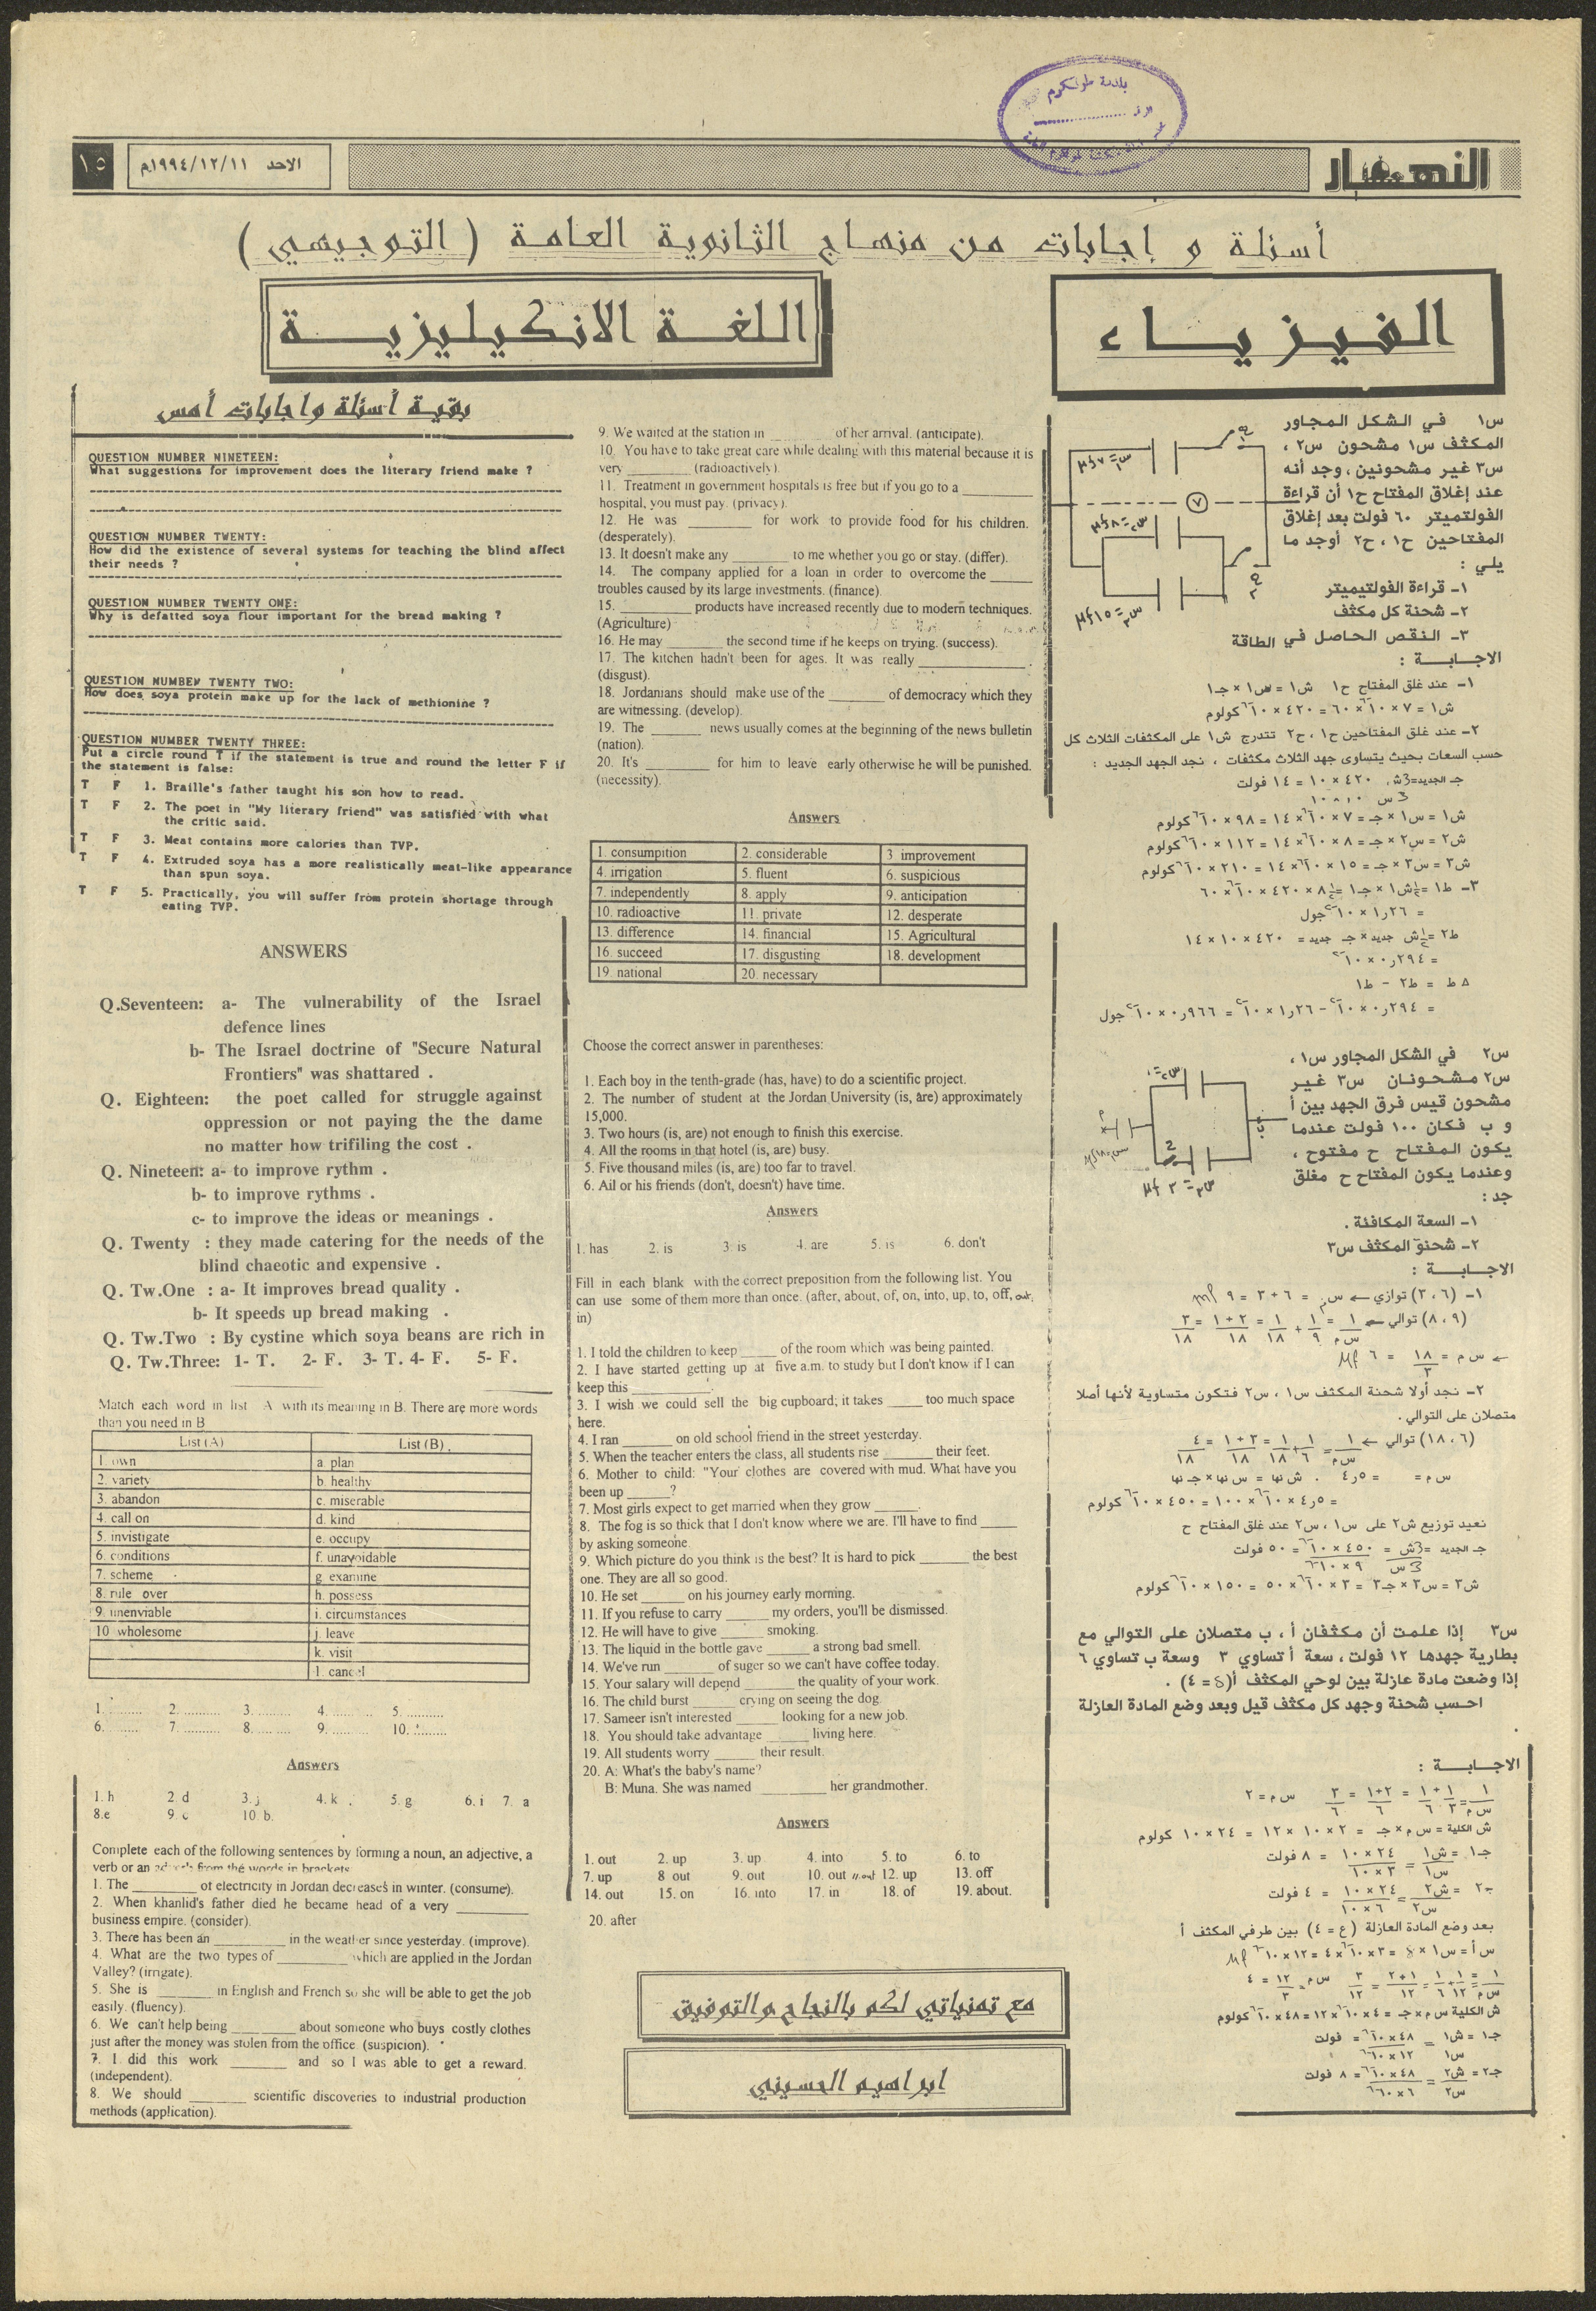 النهار
الاحد ١٩٩٤/١٢/١١م
١٥
بلدية طولكرم
أسئلة و إجابات من منهاج الثانوية العامة ( التوجيهي )
الفيزياء
س١ في الشكل المجاور
المكثف س١ مشحون س٢ ،
س٣ غير مشحونين ، وجد أنه
عند إغلاق المفتاح ح١ أن قراءة
الفولتميتر ٦٠ فولت بعد إغلاق
المفتاحين ح١ ، ح٢ أوجد ما
يلي :
١- قراءة الفولتيميتر
٢- شحنة كل مكثف
٣- النقص الحاصل في الطاقة
الاجابة :
١- عند غلق المفتاح ح١ ش١ = س١ × جـ١
ش١ = ٧ × ١٠⁻⁶ × ٦٠ = ٤٢٠ × ١٠⁻⁶ كولوم
٢- عند غلق المفتاحين ح١ ، ح٢ تتدرج ش١ على المكثفات الثلاث كل
حسب السعات بحيث يتساوى جهد الثلاث مكثفات ، نجد الجهد الجديد :
ش١ = س١ × جـ = ٧ × ١٠⁻⁶ × ١٤ = ٩٨ × ١٠⁻⁶ كولوم
ش٢ = س٢ × جـ = ٨ × ١٠⁻⁶ × ١٤ = ١١٢ × ١٠⁻⁶ كولوم
ش٣ = س٣ × جـ = ١٥ × ١٠⁻⁶ × ١٤ = ٢١٠ × ١٠⁻⁶ كولوم
Δ ط = ط٢ - ط١
س٢ في الشكل المجاور س١ ،
س٢ مشحونان س٣ غير
مشحون قيس فرق الجهد بين أ
و ب فكان ١٠٠ فولت عندما
يكون المفتاح ح مفتوح ،
وعندما يكون المفتاح ح مغلق
جد :
١- السعة المكافئة .
٢- شحنة المكثف س٣
الاجابة :
٢- نجد أولا شحنة المكثف س١ ، س٢ فتكون متساوية لأنها أصلا
متصلان على التوالي .
نعيد توزيع ش٢ على س١ ، س٢ عند غلق المفتاح ح
ش٣ = س٣ × جـ٣ = ٣ × ١٠⁻⁶ × ٥٠ = ١٥٠ × ١٠⁻⁶ كولوم
س٣ إذا علمت أن مكثفان أ ، ب متصلان على التوالي مع
بطارية جهدها ١٢ فولت ، سعة أ تساوي ٣ وسعة ب تساوي ٦
إذا وضعت مادة عازلة بين لوحي المكثف أ(8 = ٤) .
احسب شحنة وجهد كل مكثف قيل وبعد وضع المادة العازلة
.
الاجابة :
ش الكلية = س م × جـ = ٢ × ١٠ × ١٢ = ٢٤ × ١٠ كولوم
بعد وضع المادة العازلة (ع = ٤) بين طرفي المكثف أ
اللغة الانكيليزية
بقية أسئلة واجابات أمس
QUESTION NUMBER NINETEEN:
What suggestions for improvement does the literary friend make ?
QUESTION NUMBER TWENTY:
How did the existence of several systems for teaching the blind affect
their needs ?
QUESTION NUMBER TWENTY ONE:
Why is defatted soya flour important for the bread making ?
QUESTION NUMBER TWENTY TWO:
How does soya protein make up for the lack of methionine ?
QUESTION NUMBER TWENTY THREE:
Put a circle round T if the statement is true and round the letter F if
the statement is false:
T F 1. Braille's father taught his son how to read.
T F 2. The poet in "My literary friend" was satisfied with what
the critic said.
T F 3. Meat contains more calories than TVP.
T F 4. Extruded soya has a more realistically meat-like appearance
than spun soya.
T F 5. Practically, you will suffer from protein shortage through
eating TVP.
ANSWERS
Q.Seventeen: a- The vulnerability of the Israel
defence lines
b- The Israel doctrine of "Secure Natural
Frontiers" was shattared .
Q. Eighteen: the poet called for struggle against
oppression or not paying the the dame
no matter how trifiling the cost .
Q. Nineteen: a- to improve rythm .
b- to improve rythms .
c- to improve the ideas or meanings .
Q. Twenty : they made catering for the needs of the
blind chaeotic and expensive .
Q. Tw.One : a- It improves bread quality .
b- It speeds up bread making .
Q. Tw.Two : By cystine which soya beans are rich in
Q. Tw.Three: 1- T. 2- F. 3- T. 4- F. 5- F.
Match each word in list A with its meaning in B. There are more words
than you need in B
List (A) List (B)
1. own a. plan
2. variety b. healthy
3. abandon c. miserable
4. call on d. kind
5. invistigate e. occupy
6. conditions f. unavoidable
7. scheme g. examine
8. rule over h. possess
9. unenviable i. circumstances
10. wholesome j. leave
k. visit
l. cancel
1. ......... 2. .......... 3. ......... 4. .......... 5. ..........
6. ......... 7. .......... 8. ......... 9. ....... 10. .........
Answers
1. h 2. d 3. j 4. k 5. g 6. i 7. a
8.e 9. c 10. b.
Complete each of the following sentences by forming a noun, an adjective, a
verb or an adverb from the words in brackets
1. The ________ of electricity in Jordan decreases in winter. (consume).
2. When khanlid's father died he became head of a very ________
business empire. (consider).
3. There has been an ________ in the weather since yesterday. (improve).
4. What are the two types of ________ which are applied in the Jordan
Valley? (irrigate).
5. She is ________ in English and French so she will be able to get the job
easily. (fluency).
6. We can't help being ________ about someone who buys costly clothes
just after the money was stolen from the office (suspicion).
7. I did this work ________ and so I was able to get a reward.
(independent).
8. We should ________ scientific discoveries to industrial production
methods (application).
9. We waited at the station in ________ of her arrival. (anticipate).
10. You have to take great care while dealing with this material because it is
very ________ (radioactively).
11. Treatment in government hospitals is free but if you go to a ________
hospital, you must pay. (privacy).
12. He was ________ for work to provide food for his children.
(desperately).
13. It doesn't make any ________ to me whether you go or stay. (differ).
14. The company applied for a loan in order to overcome the _____
troubles caused by its large investments. (finance).
15. ________ products have increased recently due to modern techniques.
(Agriculture)
16. He may _______ the second time if he keeps on trying. (success).
17. The kitchen hadn't been for ages. It was really ____________ .
(disgust).
18. Jordanians should make use of the _______ of democracy which they
are witnessing. (develop).
19. The ______ news usually comes at the beginning of the news bulletin
(nation).
20. It's ________ for him to leave early otherwise he will be punished.
(necessity).
Answers
1. consumpition 2. considerable 3 improvement
4. irrigation 5. fluent 6. suspicious
7. independently 8. apply 9. anticipation
10. radioactive 11. private 12. desperate
13. difference 14. financial 15. Agricultural
16. succeed 17. disgusting 18. development
19. national 20. necessary
Choose the correct answer in parentheses:
1. Each boy in the tenth-grade (has, have) to do a scientific project.
2. The number of student at the Jordan University (is, are) approximately
15,000.
3. Two hours (is, are) not enough to finish this exercise.
4. All the rooms in that hotel (is, are) busy.
5. Five thousand miles (is, are) too far to travel.
6. Ail or his friends (don't, doesn't) have time.
Answers
1. has 2. is 3. is 4. are 5. is 6. don't
Fill in each blank with the correct preposition from the following list. You
can use some of them more than once. (after, about, of, on, into, up, to, off, out,
in)
1. I told the children to keep _____ of the room which was being painted.
2. I have started getting up at five a.m. to study but I don't know if I can
keep this __________.
3. I wish we could sell the big cupboard; it takes _____ too much space
here.
4. I ran _______ on old school friend in the street yesterday.
5. When the teacher enters the class, all students rise _______ their feet.
6. Mother to child: "Your clothes are covered with mud. What have you
been up ______?
7. Most girls expect to get married when they grow ______.
8. The fog is so thick that I don't know where we are. I'll have to find _____
by asking someone.
9. Which picture do you think is the best? It is hard to pick _______ the best
one. They are all so good.
10. He set ______ on his journey early morning.
11. If you refuse to carry ______ my orders, you'll be dismissed.
12. He will have to give ______ smoking.
13. The liquid in the bottle gave ______ a strong bad smell.
14. We've run _______ of suger so we can't have coffee today.
15. Your salary will depend _______ the quality of your work.
16. The child burst ______ crying on seeing the dog.
17. Sameer isn't interested ______ looking for a new job.
18. You should take advantage ______ living here.
19. All students worry ______ their result.
20. A: What's the baby's name?
B: Muna. She was named _________ her grandmother.
Answers
1. out 2. up 3. up 4. into 5. to 6. to
7. up 8 out 9. out 10. out 11. out 12. up 13. off
14. out 15. on 16. into 17. in 18. of 19. about.
20. after
مع تمنياتي لكم بالنجاح والتوفيق
ابراهيم الحسيني